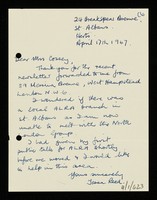 24 Breakspear Avenue
St. Albans
Herts
April 17th 1967
Dear Miss Cossey,
Thank you for the recent
newsletter forwarded to me from
59 Menun Avenue, West Hampstead
London N.W.6
I wondered if there was
a local ALRA branch in
St. Albans as I am now
unable to meet with the North
London Group.
I had given my first
entire talk for ALRA shortly
before we moved & I would like
to help in this area.
Yours sincerely
Jean Reed.